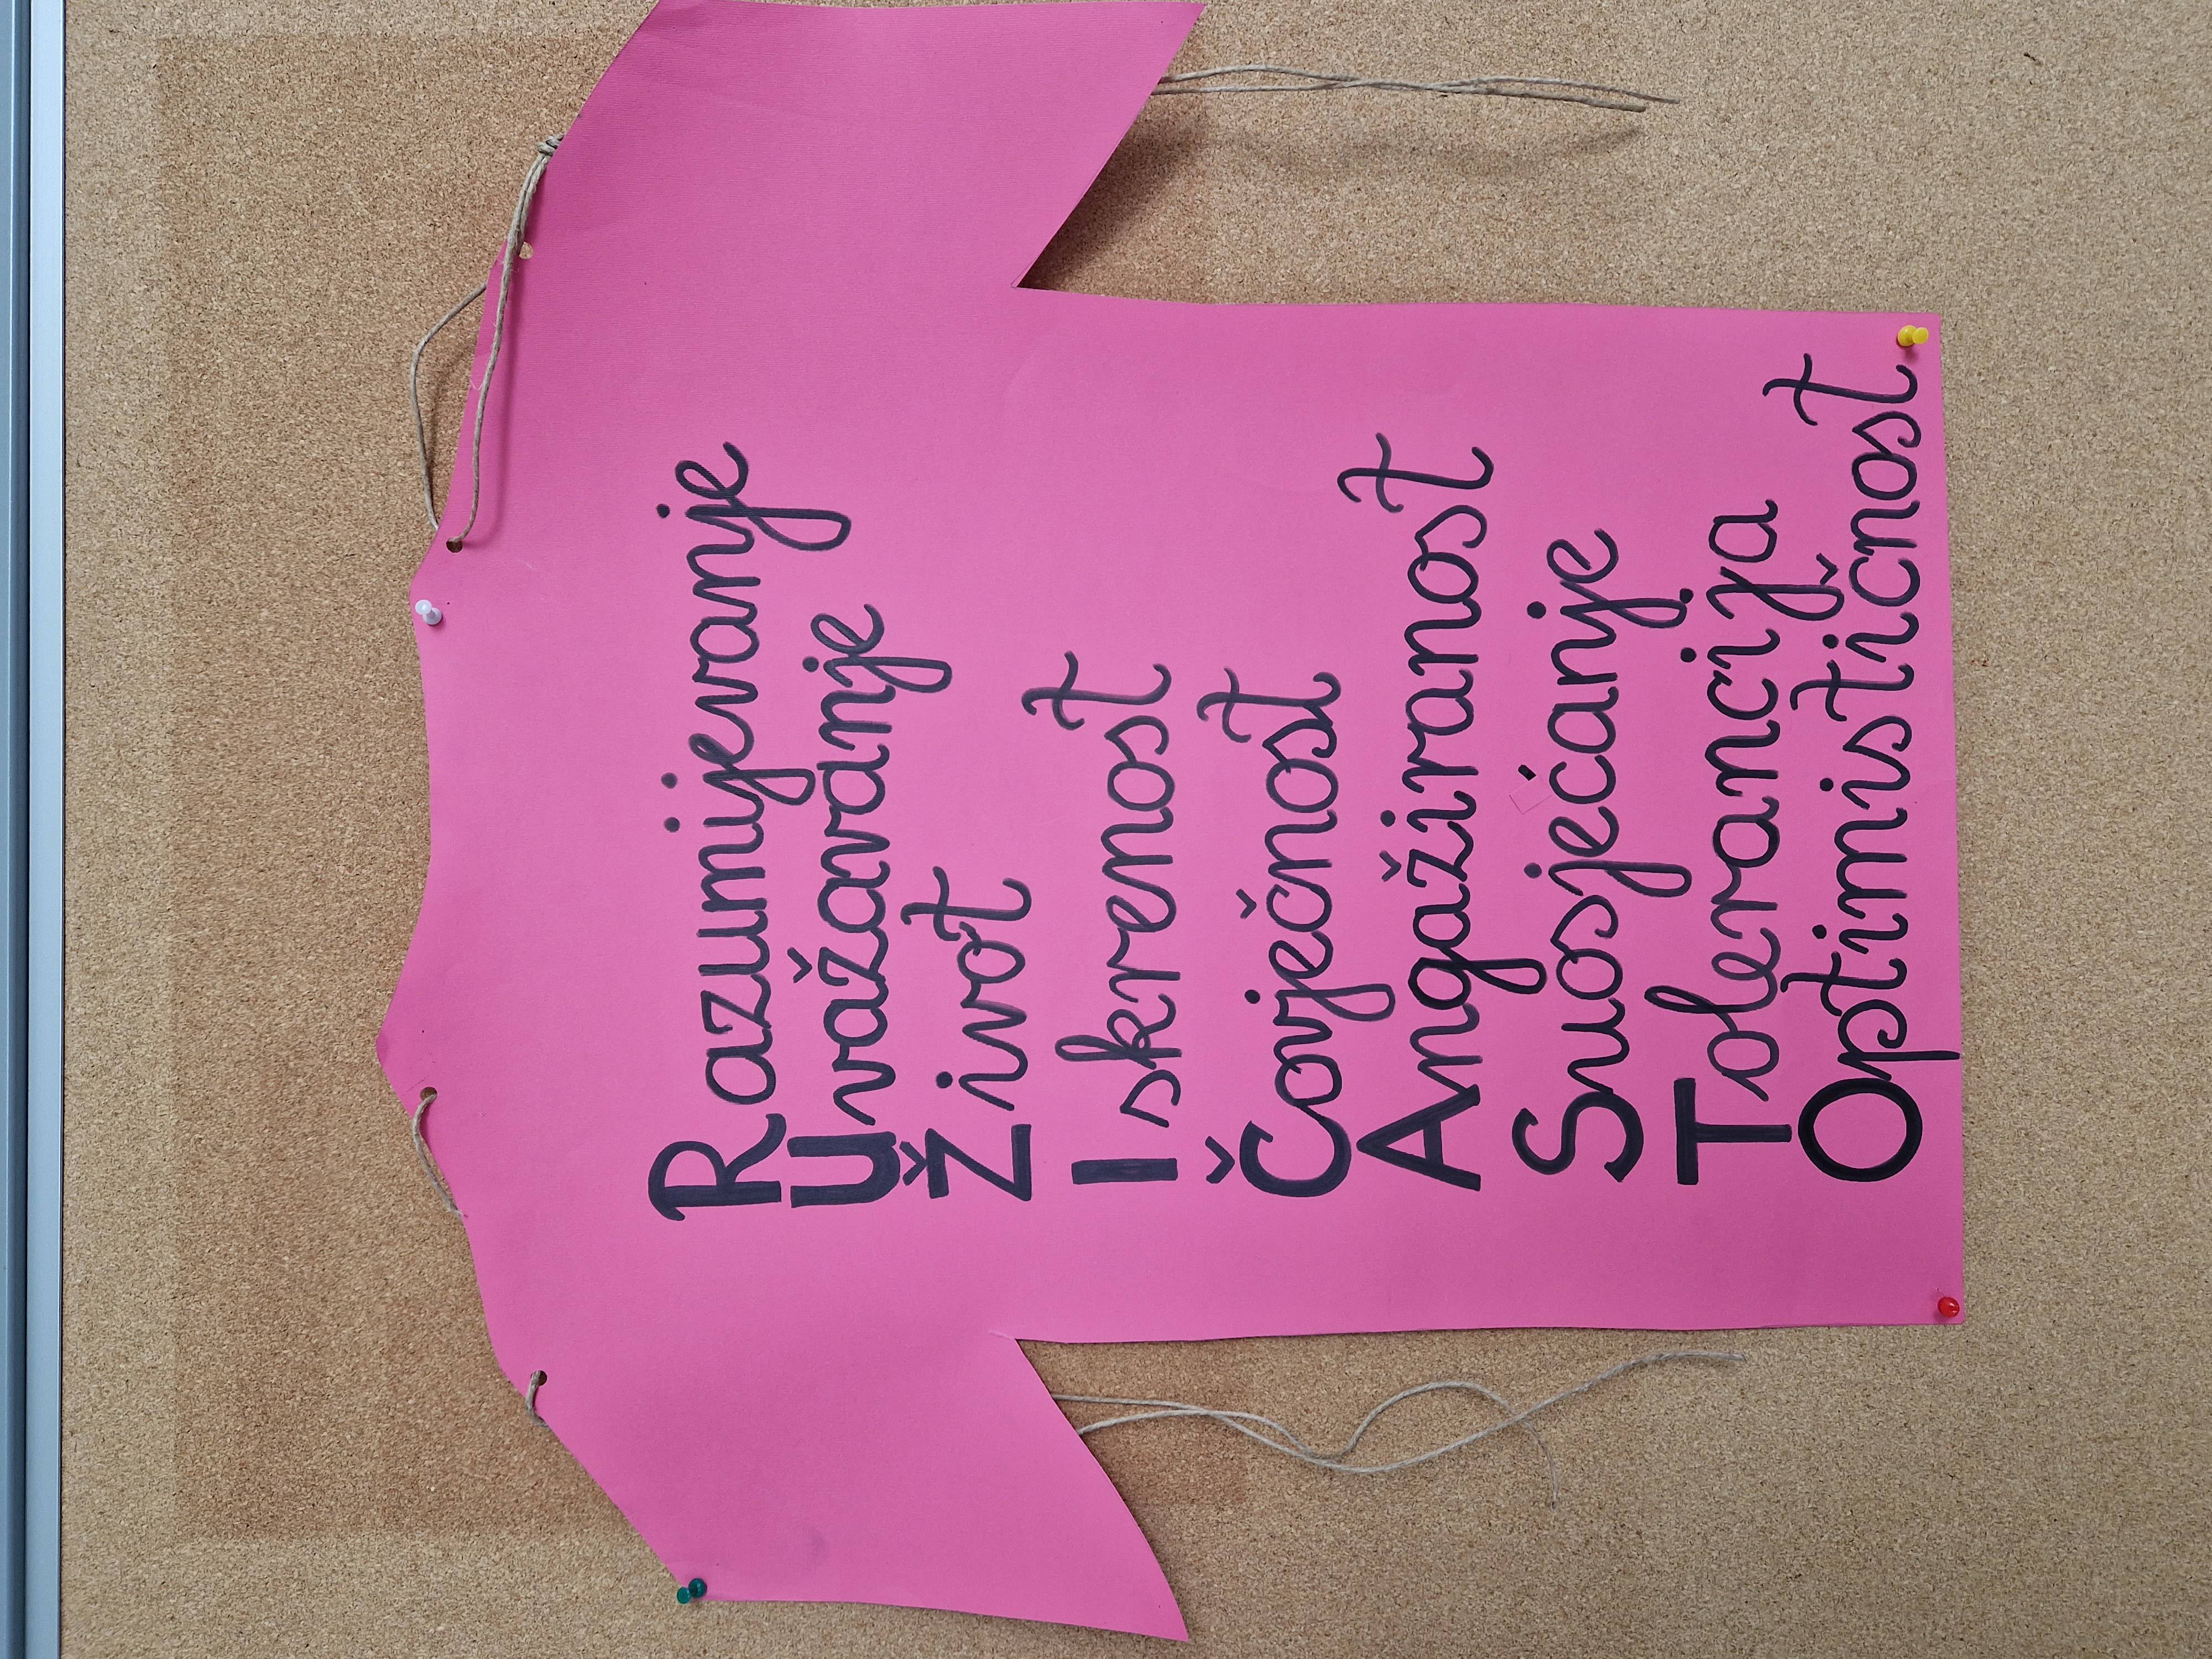 Razumijevanje
Uvažavanje
Život
Iskrenost
Čovječnost
Angažiranost
Suosjećanje
Tolerancija
Optimističnost